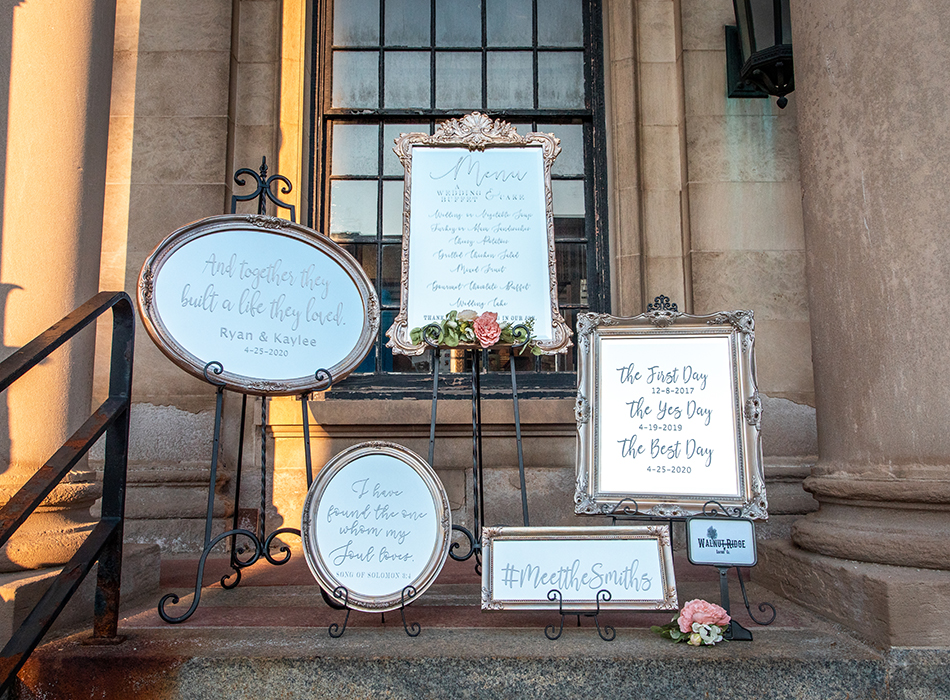 And together they
built a life they loved.
Ryan & Kaylee
4-25-2020
Menu
A
WEDDING & CAKE
BUFFET
Wedding or Vegetable Soup
Turkey or Ham Sandwiches
Cheesy Potatoes
Grilled Chicken Salad
Mixed Fruit
Gourmet Chocolate Buffet
Wedding Cake
THANK IN OUR
the First Day
12-8-2017
the Yes Day
4-19-2019
the Best Day
4-25-2020
I have
found the one
whom my
Soul loves.
SONG OF SOLOMON 3:4
#MeettheSmiths
WALNUT RIDGE